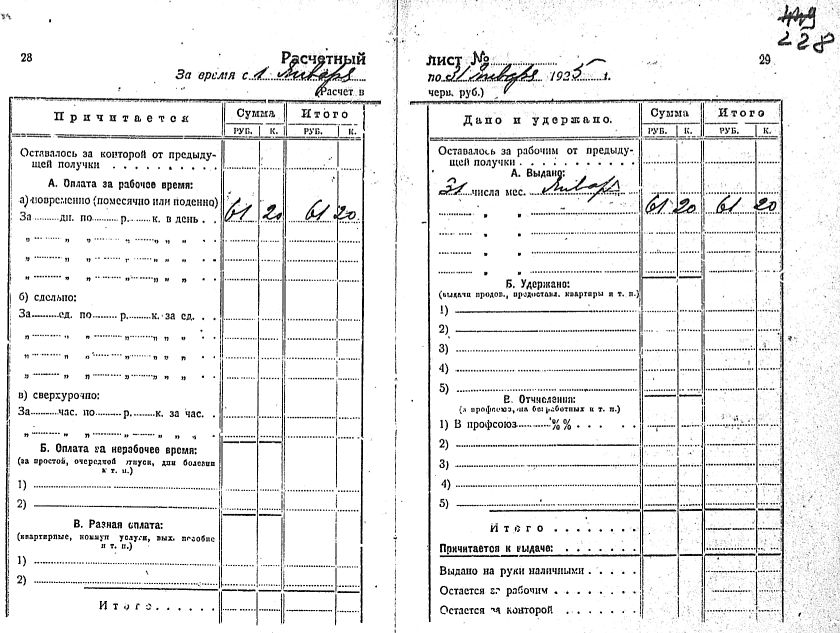 449
228
28
Расчетный
За время с 1 Января
(Расчет в
Причитается
Сумма
Итого
РУБ. К. РУБ. К.
Оставалось за конторой от предыду-
щей получки . . . . . . . . . .
А. Оплата за рабочее время:
а) повременно (помесячно или поденно)
За ........ дн. по ........ р. ...... к. в день . . 61 20 61 20
„ ........ „ „ ........ „ ........ „ „ „ . .
„ ........ „ „ ........ „ ........ „ „ „ . .
„ ........ „ „ ........ „ ........ „ „ „ . .
б) сдельно:
За ........ ед. по ........ р. ...... к. за ед. . . .
„ ........ „ „ ........ „ ........ „ „ „ . .
„ ........ „ „ ........ „ ........ „ „ „ . .
„ ........ „ „ ........ „ ........ „ „ „ . .
в) сверхурочно:
За ........ час. по ........ р. ...... к. за час. . .
„ ........ „ „ ........ „ ........ „ „ „ . .
Б. Оплата за нерабочее время:
(за простой, очередной отпуск, дни болезни
и т. п.)
1)
2)
В. Разная оплата:
(квартирные, коммун услуги, вых. пособие
и т. п.)
1)
2)
Итого . . . . . .
лист №
29
по 31 Января 1925 г.
черв. руб.)
Дано и удержано.
Сумма
Итого
РУБ. К. РУБ. К.
Оставалось за рабочим от предыду-
щей получки . . . . . . . . . .
А. Выдано:
31 числа мес. Январь
„ „ 61 20 61 20
„ „
„ „
„ „
Б. Удержано:
(выдачи продов., предоставл. квартиры и т. п.)
1)
2)
3)
4)
5)
В. Отчисления:
(в профсоюз, на безработных и т. п.)
1) В профсоюз ........ %% . . . . .
2)
3)
4)
5)
Итого . . . . . . . .
Причитается к выдаче: . . . . . . .
Выдано на руки наличными . . . . .
Остается за рабочим . . . . . . .
Остается за конторой . . . . . . .